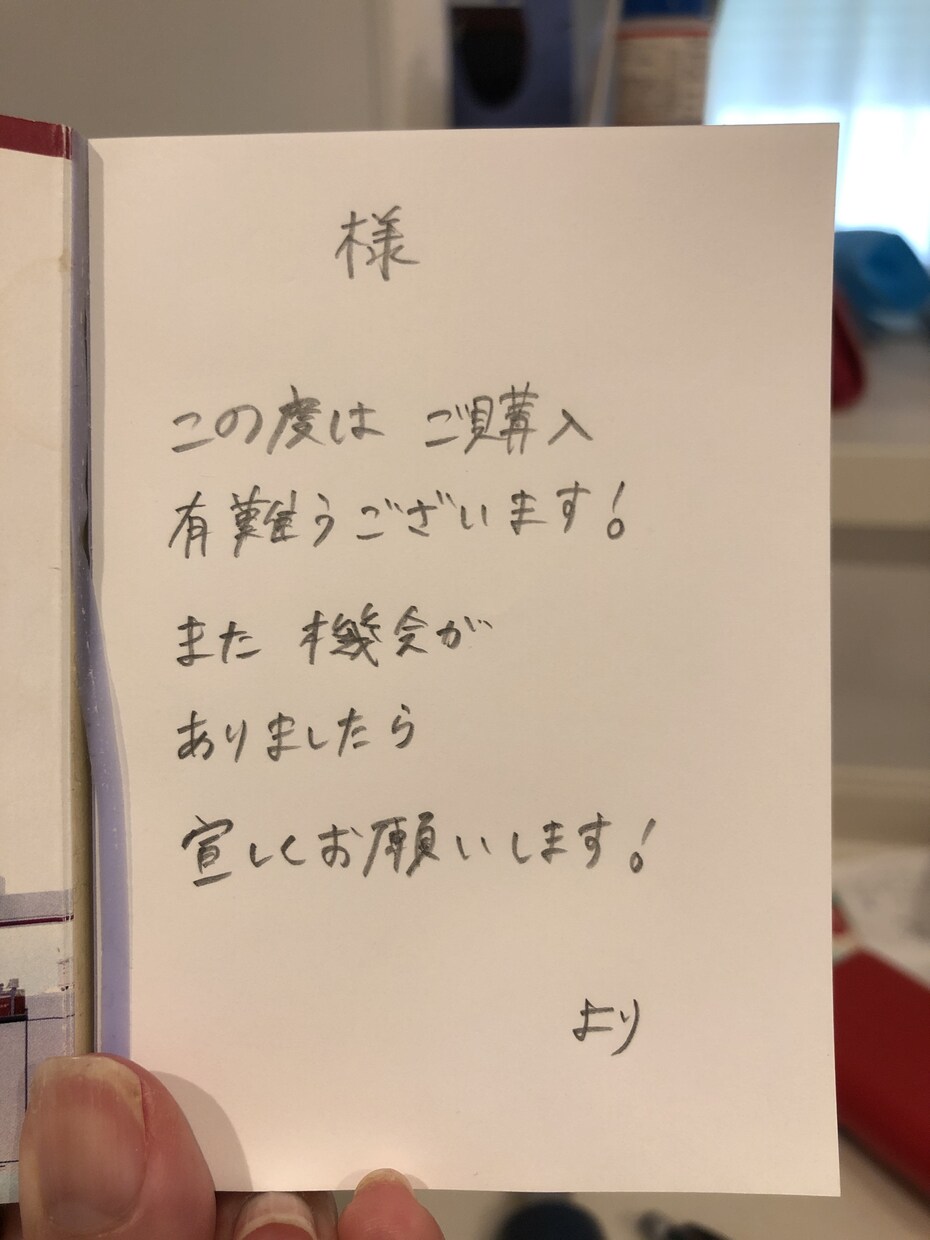 様
この度は ご購入
有難うございます!
また 機会が
ありましたら
宜しくお願いします!
より